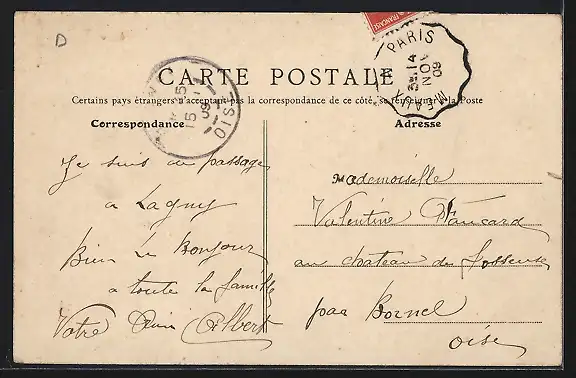 D
FRANÇAISE
PARIS
3E 14
NOV
09
MEAUX
15
09
OISE
CARTE POSTALE
Certains pays étrangers n'acceptant pas la correspondance de ce côté, se renseigner à la Poste
Correspondance
Adresse
Je suis de passage
a Lagny
Bien le Bonjour
a toute la famille
Votre Ami Albert
Mademoiselle
Valentine
au chateau de
par Bornel
Oise